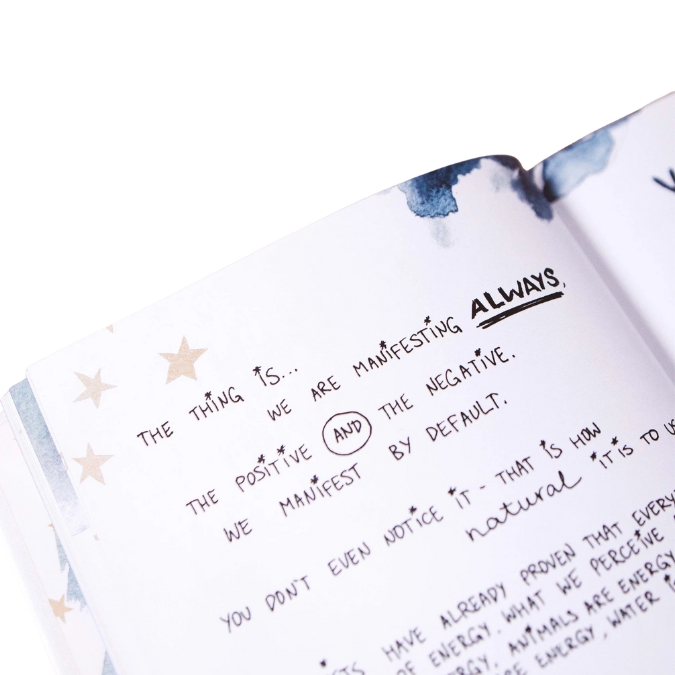 THE THING IS...
WE ARE MANIFESTING ALWAYS,
THE POSITIVE AND THE NEGATIVE.
WE MANIFEST BY DEFAULT.
YOU DON'T EVEN NOTICE IT - THAT IS HOW
natural IT IS TO
HAVE ALREADY PROVEN THAT
OF ENERGY. WHAT WE PERCEIVE
ANIMALS ARE ENERGY
ENERGY, WATER